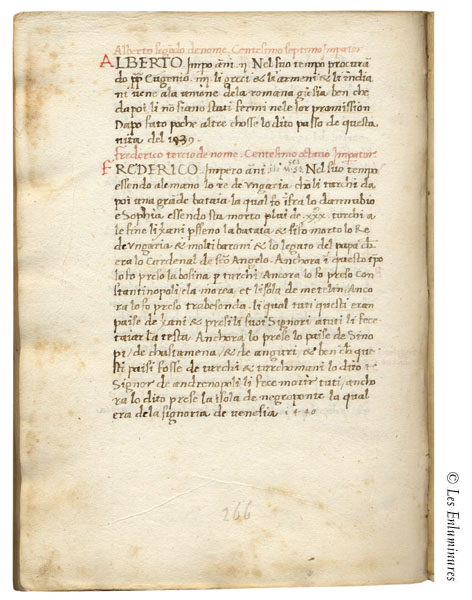 Alberto segōdo de nome. Centesimo septimo Impator
ALBERTO. Impo āni .ij. Nel suo tempo procurā
do pp Eugenio .iiij. li greci & la armeni & la india
ni vene ala unione dela romana giesia ben che
dapoi li nō siano stati fermi nele lor promission
Dapo fato poche altre chosse lo dito passo de questa
uita del 1439.
Frederico tercio de nome. Centesimo octavo Impator.
FREDERICO. Impero āni Nel suo tempo
essendo alemano lo re de ungaria cho li turchi da
poi una grāde bataia la qual fo ifra lo dannubio
e Sophia essendo sta morto plui de .xxx. turchi a
le fine li xani psseno la bataia & fo morto lo Re
de ungaria & molti baroni & lo legato del papa ch
era lo Cardenal de sco Angelo. Anchora i questo tpo
lo fo preso la bosina p turchi Ancora lo fo preso Con
stantinopoli ela morea et lisola de metelin Anco
ra lo fo preso trabesonda. li qual tuti questi eran
paise de xani & presi li suoi Signori a tuti li fece
taiar la testa. Anchora lo prese lo paise de Sino
pi & de chastamena & de anguri & ben ch que
sti paisi fosse de turchi & turchomani lo dito
Signor de andrenopoli li fece morir tuti, ancho
ra lo dito prese la isola de negroponte la qual
era dela signoria de venesia 1440
266
© Les Enluminures